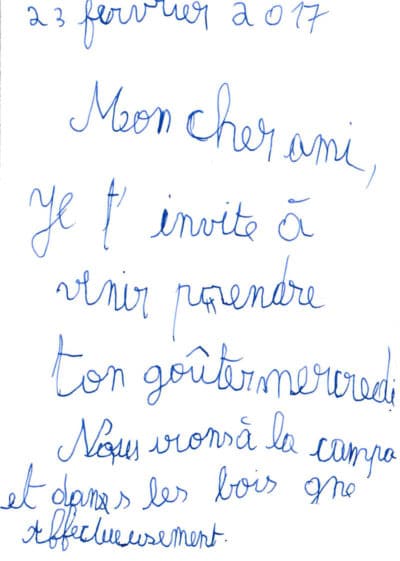 23 février 2017
Mon cher ami,
Je t'invite à
venir prendre
ton goûter mercredi
Nous irons à la campa
et dans les bois gne
Affectueusement.